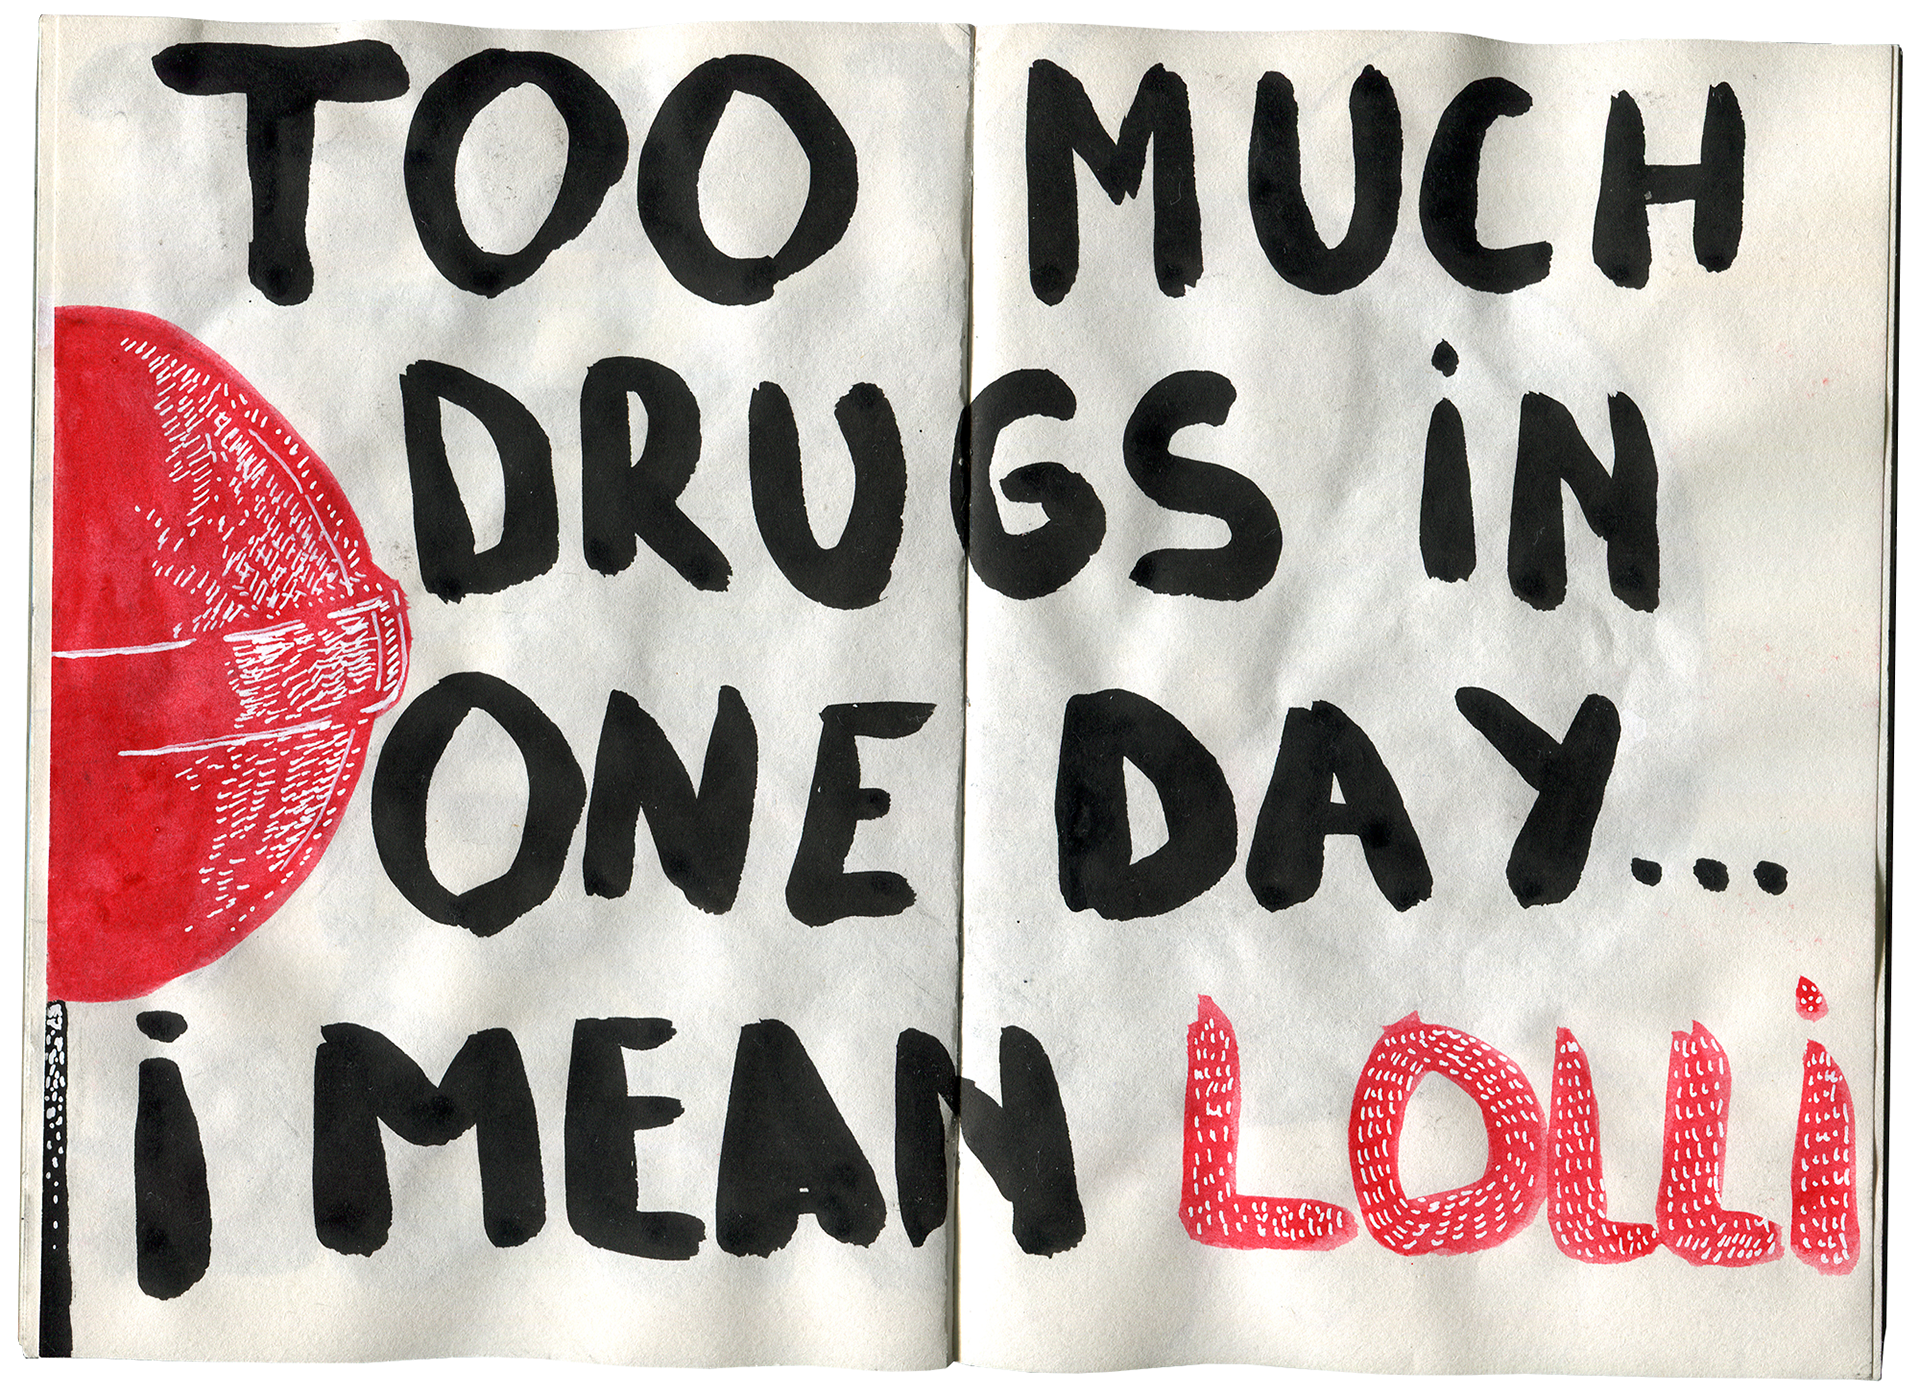 TOO MUCH
DRUGS iN
ONE DAY...
i MEAN LOLLi